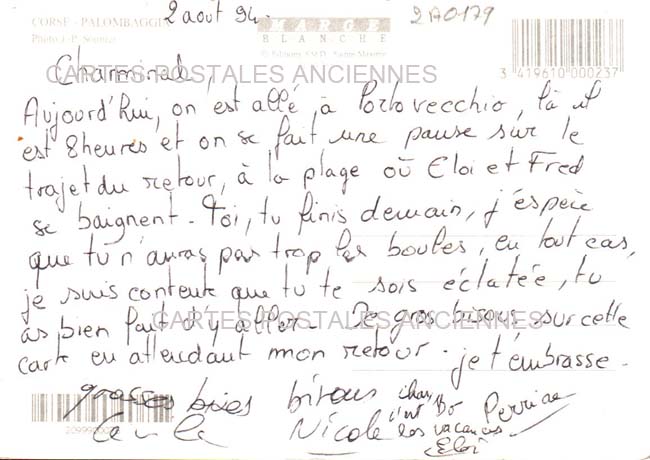 CORSE - PALOMBAGGIA
2 août 94.
MARGE
BLANCHE
2A0179
3 419610 000237
CARTES POSTALES ANCIENNES
Aujourd'hui, on est allé à Portovecchio, là il
est 8heures et on se fait une pause sur le
trajet du retour, à la plage où Eloi et Fred
se baignent. Toi, tu finis demain, j'espère
que tu n'auras pas trop les boules, en tout cas,
je suis contente que tu te sois éclatée, tu
as bien fait d'y aller. De gros bisous sur cette
CARTES POSTALES ANCIENNES
carte en attendant mon retour. je t'embrasse.
grosses bises
bisous
Nicole
c'est Bo
les vacances
Eloi
Perrine